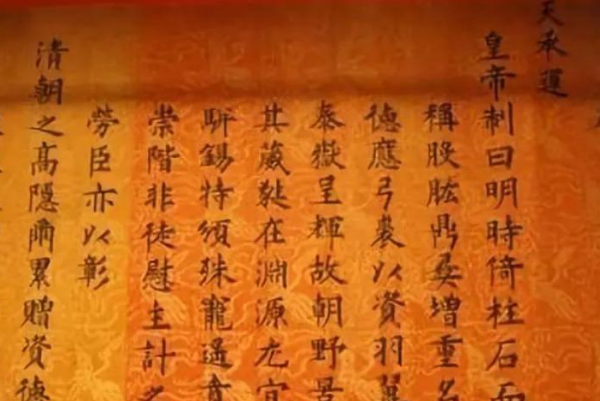 天承運
皇帝制曰明時倚柱石而
稱股肱鼎彝增重名
德應弓裘以資羽翼
泰嶽呈輝故朝野景
其葳蕤在淵源尤宜
錫特頒殊寵
崇階非徒慰主計之
勞臣亦以彰
清朝之高隱爾累贈資德